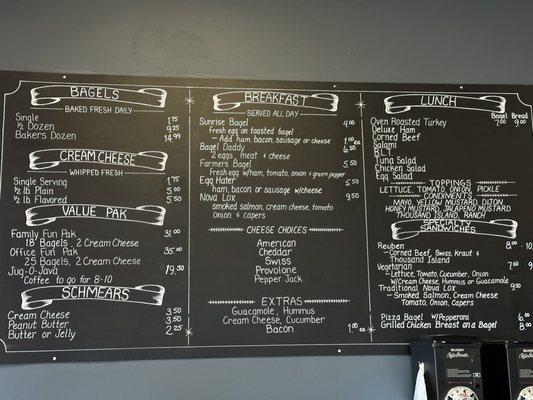 BAGELS
BAKED FRESH DAILY
Single 1.75
1/2 Dozen 9.25
Bakers Dozen 14.99
CREAM CHEESE
WHIPPED FRESH
Single Serving 1.75
1/2 lb. Plain 5.00
1/2 lb. Flavored 5.50
VALUE PAK
Family Fun Pak 31.00
18 Bagels, 2 Cream Cheese
Office Fun Pak 35.00
25 Bagels, 2 Cream Cheese
Jug-O-Java 19.50
"Coffee to go for 8-10
SCHMEARS
Cream Cheese 3.50
Peanut Butter 3.50
Butter or Jelly 2.25
BREAKFAST
SERVED ALL DAY
Sunrise Bagel 4.00
fresh egg on toasted bagel
~ Add ham, bacon, sausage or cheese 1.00 ea.
Bagel Daddy 6.50
2 eggs, meat + cheese
Farmers Bagel 5.50
fresh egg w/ham, tomato, onion + green pepper
Egg Hater 5.50
ham, bacon or sausage w/cheese
Nova Lox 9.50
smoked salmon, cream cheese, tomato
Onion & capers
CHEESE CHOICES
American
Cheddar
Swiss
Provolone
Pepper Jack
EXTRAS
Guacamole, Hummus
Cream Cheese, Cucumber
Bacon 1.00 ea.
LUNCH
Bagel Bread
Oven Roasted Turkey 7.00 9.00
Deluxe Ham
Corned Beef
Salami
BLT
Tuna Salad
Chicken Salad
Egg Salad
TOPPINGS
LETTUCE, TOMATO, ONION, PICKLE
CONDIMENTS
MAYO, YELLOW MUSTARD, DIJON
HONEY MUSTARD, JALAPENO MUSTARD
THOUSAND ISLAND, RANCH
SPECIALTY
SANDWICHES
Reuben 8.00
~ Corned Beef, Swiss, Kraut +
Thousand Island
Vegetarian 7.00
~ Lettuce, Tomato, Cucumber, Onion
w/Cream Cheese, Hummus or Guacamole
Traditional Nova Lox 9.50
~ Smoked Salmon, Cream Cheese
Tomato, Onion, Capers
Pizza Bagel w/Pepperoni 6.00
Grilled Chicken Breast on a Bagel 8.00
BUNN
BUNN